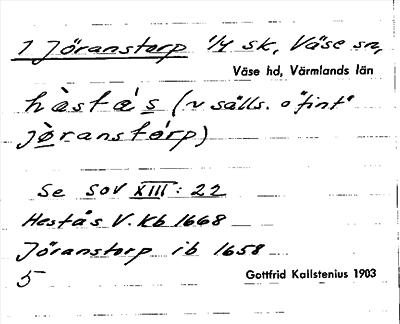 1 Jöranstorp 1/4 sk, Väse sn,
Väse hd, Värmlands län
hὰstá's (~ sälls. o "fint"
jö̀ranstórp)
Se SOV XIII: 22
Hestås V. Kb 1668
Jöranstorp ib 1658
5 Gottfrid Kallstenius 1903